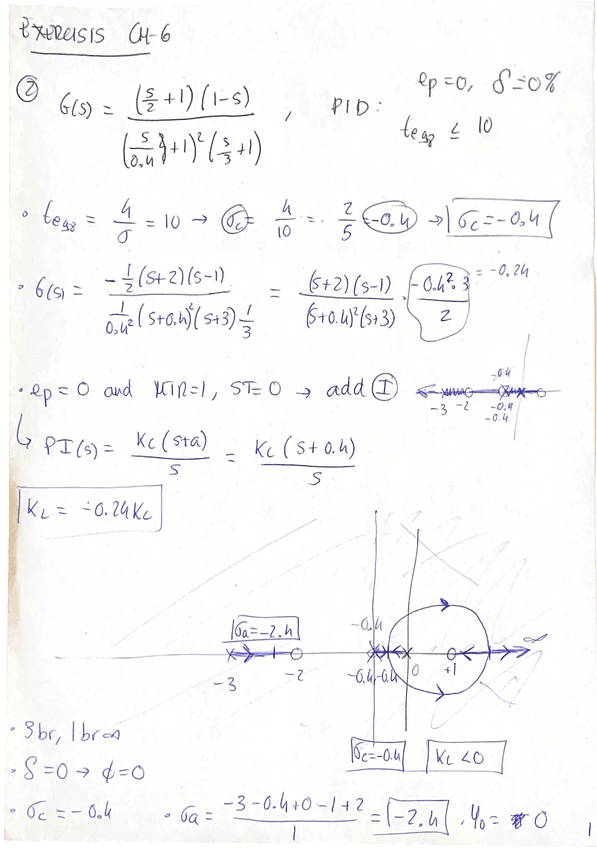 EXERCISIS CH-6
② G(s) = (s/2 + 1)(1-s) / (s/0.4 + 1)² (s/3 + 1) , PID: ep=0, δ=0%
te98 ≤ 10
• te98 = 4/σ = 10 → σc = 4/10 = 2/5 = -0.4 → σc = -0.4
• G(s) = -1/2 (s+2)(s-1) / 1/0.4² (s+0.4)² (s+3) 1/3 = (s+2)(s-1) / (s+0.4)² (s+3) · -0.4²·3 / 2 = -0.24
• ep=0 and MIR=1, ST=0 → add I
-0.4
-3 -2 -0.4
-0.4
↳ PI(s) = Kc(s+a) / s = Kc(s+0.4) / s
KL = -0.24Kc
σa=-2.4 -0.4 ∞
-3 -2 -0.4 -0.4 0 +1
• 3br, 1br∞ σc=-0.4 KL<0
• δ=0 → ϕ=0
• σc = -0.4 • σa = -3-0.4+0-1+2 / 1 = -2.4 . φ0 = 0
1